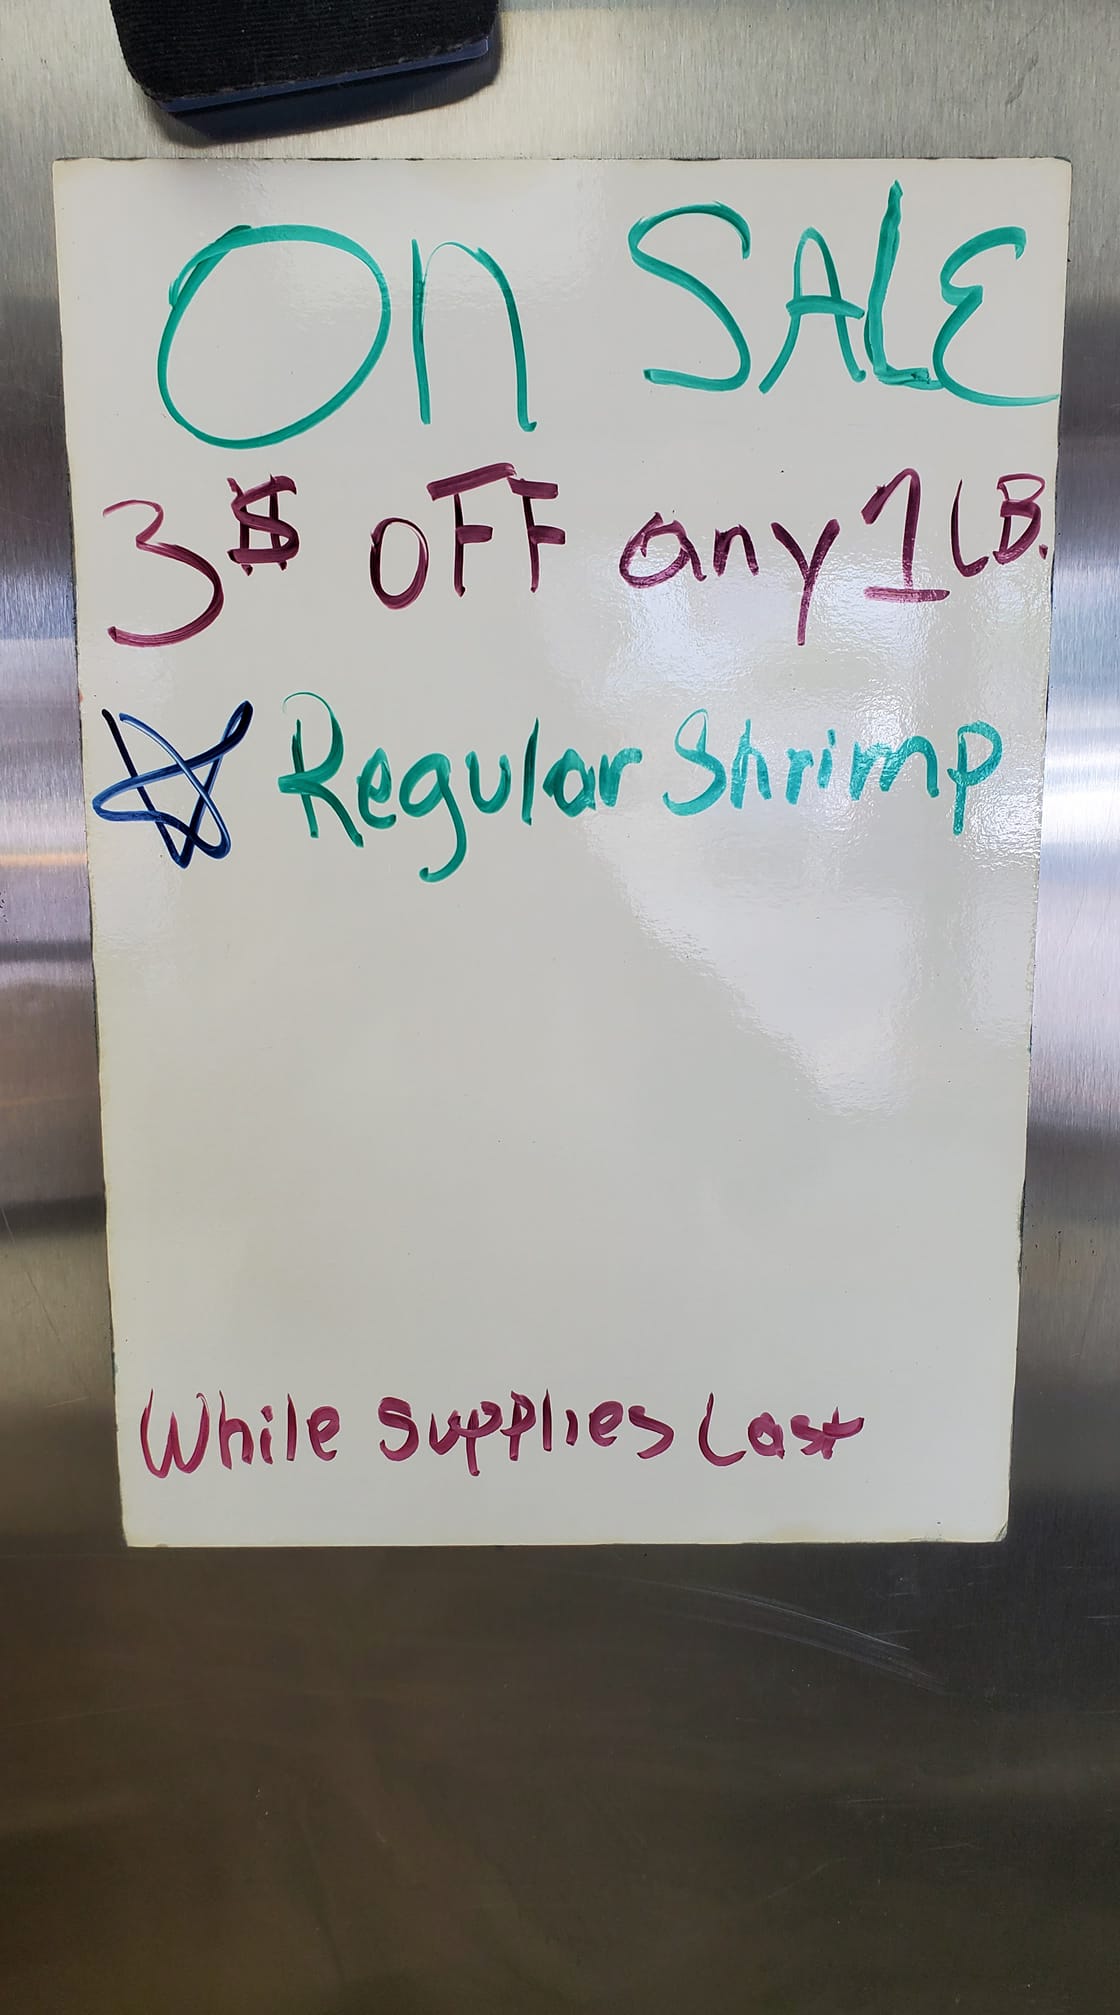 On SALE
3$ OFF any 1 LB.
Regular Shrimp
While Supplies Last